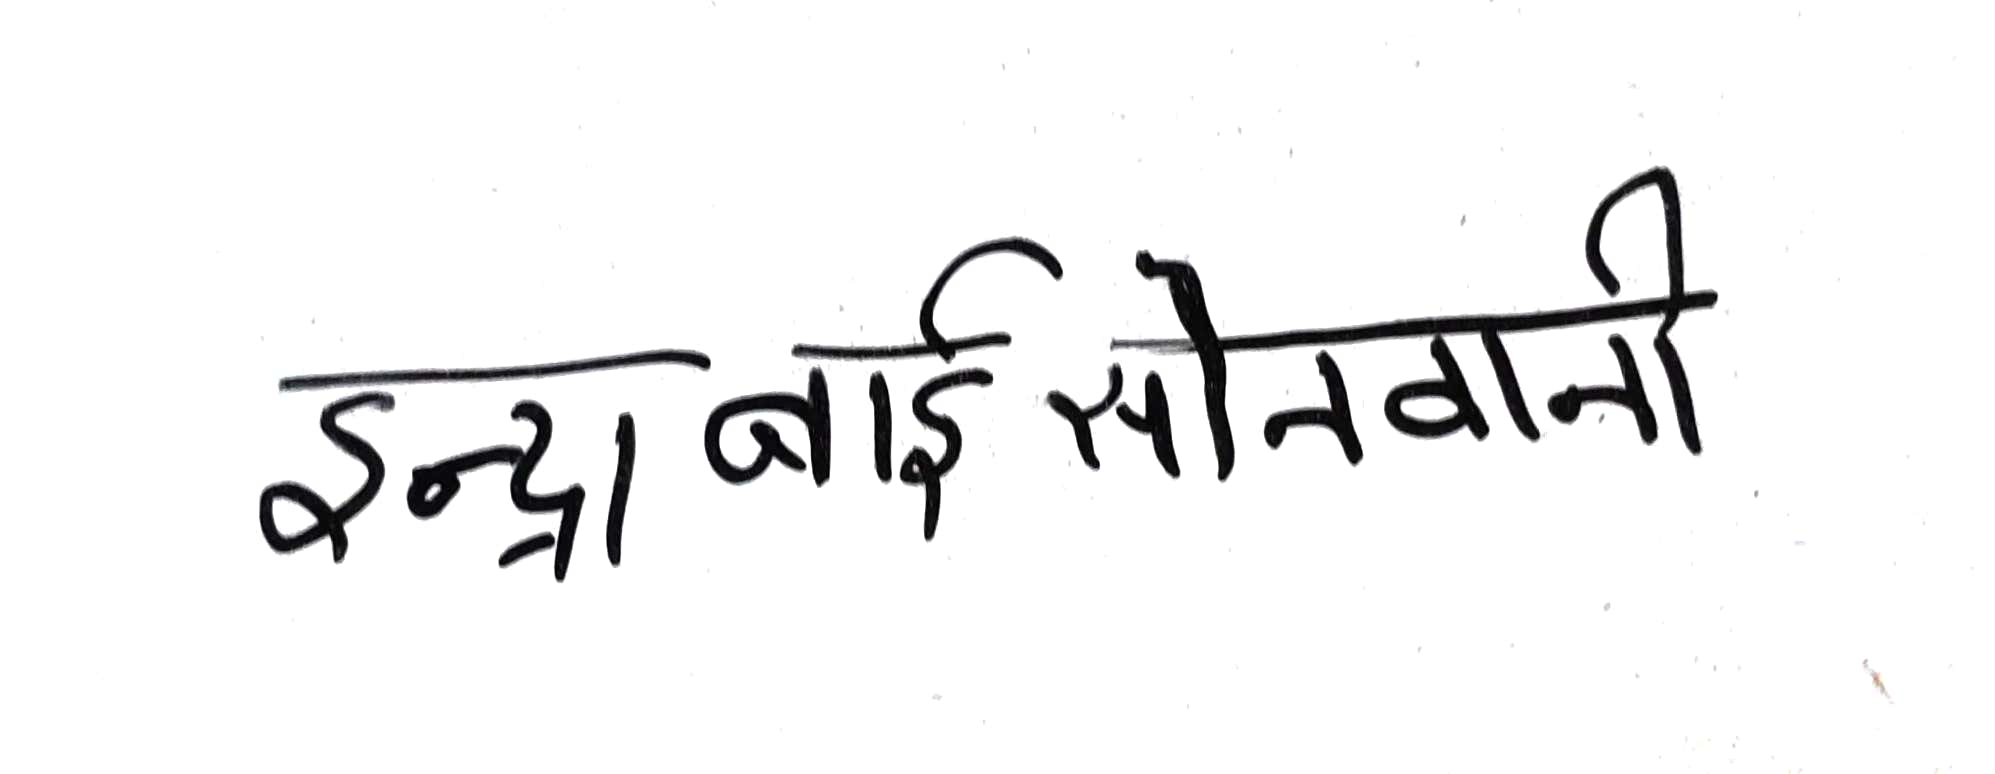 इन्द्रा बाई सोनवानी